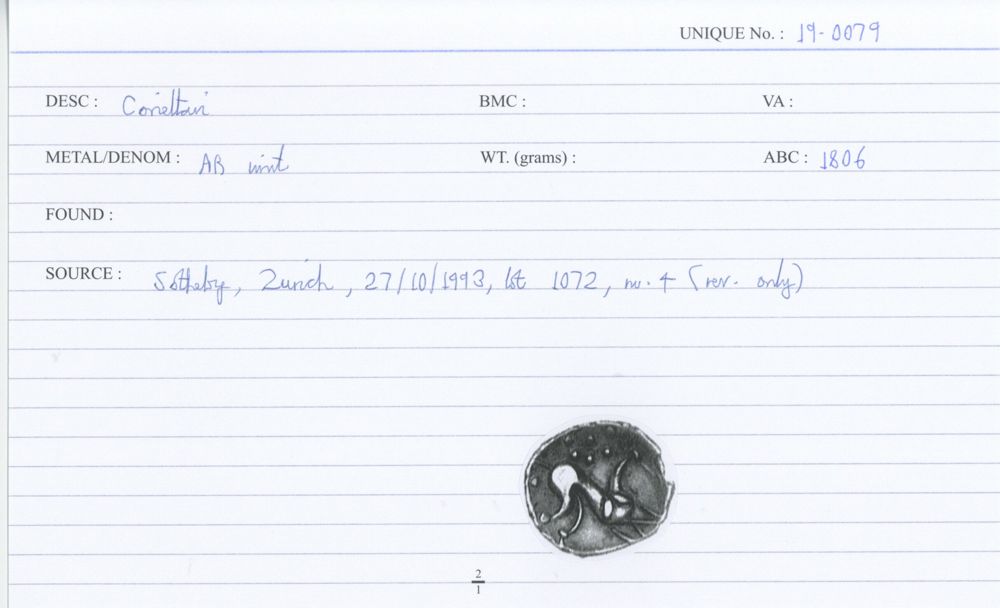 UNIQUE No. : 19-0079
DESC : Corieltavi BMC : VA :
METAL/DENOM : AR unit WT. (grams) : ABC : 1806
FOUND :
SOURCE : Sotheby, Zurich, 27/10/1993, lot 1072, no. 4 (rev. only)
2
1